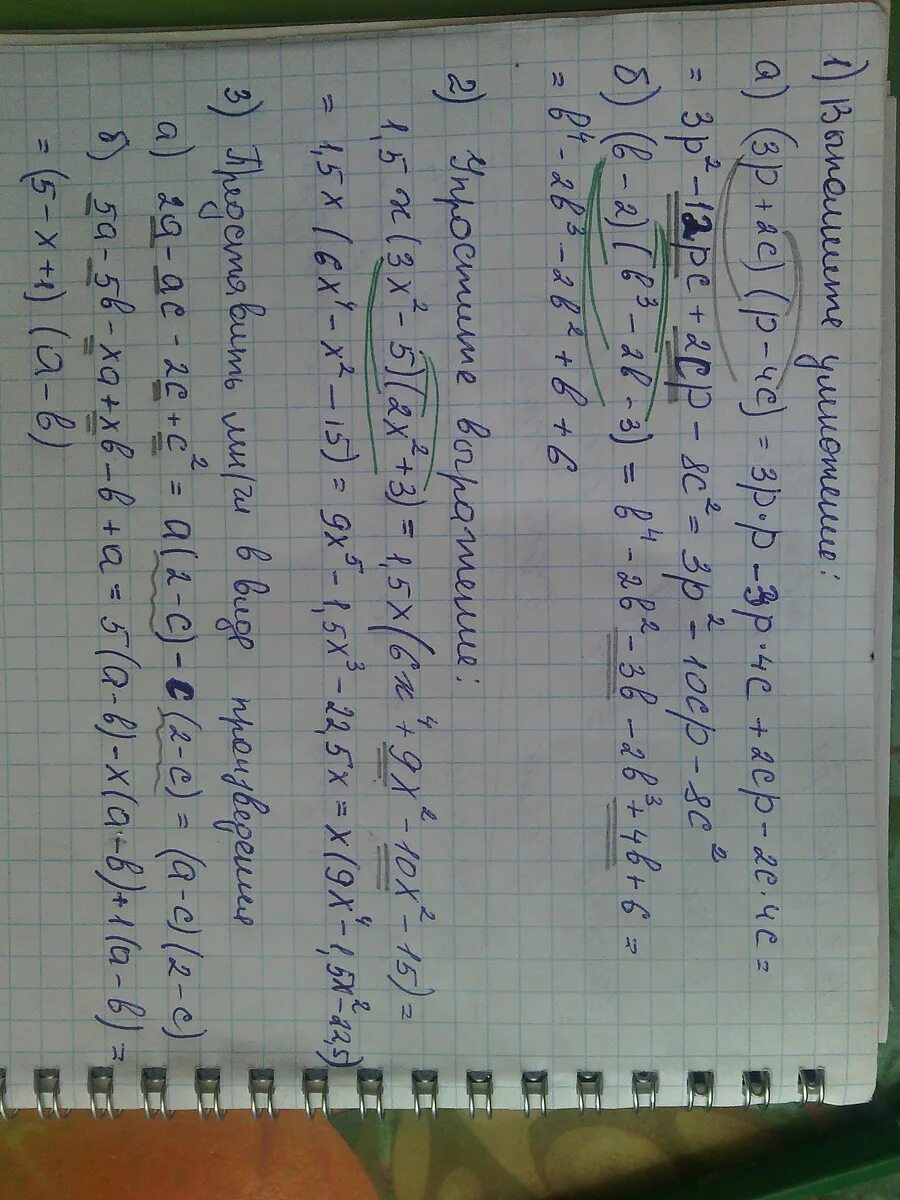 1) Выполните умножение:
а) (3p + 2c)(p - 4c) = 3p·p - 3p·4c + 2cp - 2c·4c =
= 3p² - 12pc + 2cp - 8c² = 3p² - 10cp - 8c²
б) (b - 2)(b³ - 2b - 3) = b⁴ - 2b² - 3b - 2b³ + 4b + 6 =
= b⁴ - 2b³ - 2b² + b + 6
2) Упростите выражение:
1,5x(3x² - 5)(2x² + 3) = 1,5x(6x⁴ + 9x² - 10x² - 15) =
= 1,5x(6x⁴ - x² - 15) = 9x⁵ - 1,5x³ - 22,5x = x(9x⁴ - 1,5x² - 22,5)
3) Представить мн/чл в виде произведения
а) 2a - ac - 2c + c² = a(2 - c) - c(2 - c) = (a - c)(2 - c)
б) 5a - 5b - xa + xb - b + a = 5(a - b) - x(a - b) + 1(a - b) =
= (5 - x + 1)(a - b)